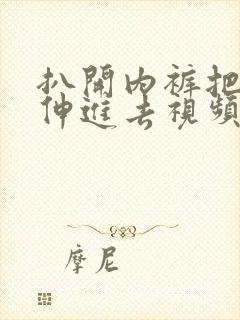 扒開內裤把
伸進去視頻
摩尼